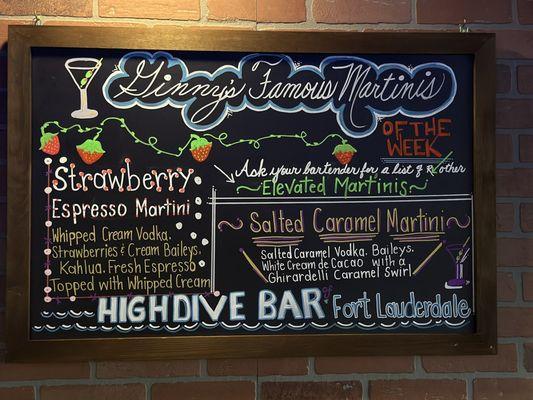 Ginny's Famous Martinis
OF THE
WEEK
Ask your bartender for a list of other
Elevated Martinis
Strawberry
Espresso Martini
Whipped Cream Vodka,
Strawberries & Cream Baileys,
Kahlua, Fresh Espresso
Topped with Whipped Cream
Salted Caramel Martini
Salted Caramel Vodka, Baileys,
White Creme de Cacao with a
Ghirardelli Caramel Swirl
HIGHDIVE BAR of Fort Lauderdale